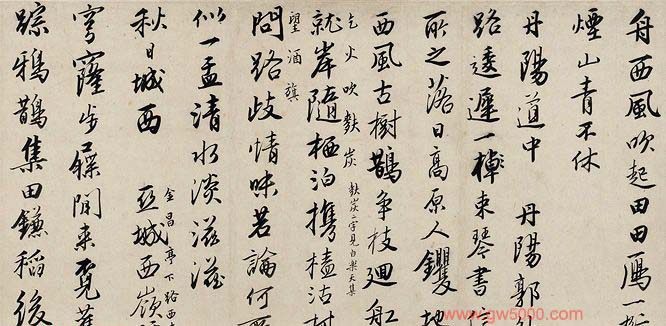 舟西風吹起田田鴈一
煙山青不休
丹陽道中 丹陽郭外
路逶遲一棹東琴書信
所之落日高原人钁地
西風古樹鵲爭枝廻舡
乞火吹麩炭 麩炭二字見白樂天集
就岸隨栖泊攜榼沽村
望酒旗
問路歧情味若論何所
似一盂清水淡滋滋
秋日城西 金昌亭下路西
亞城西嶺
穹窿步屧閒來覓
踪鴉鵲集田鐮稻後
www.gw5000.com